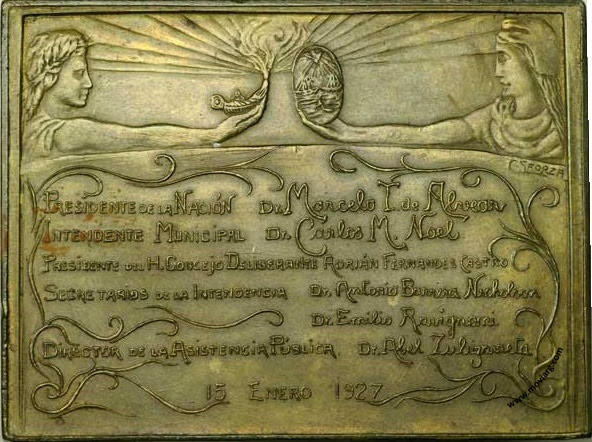 C. SFORZA
PRESIDENTE DE LA NACIÓN Dr. Marcelo T. de Alvear
INTENDENTE MUNICIPAL Dr. Carlos M. Noel
PRESIDENTE DEL H. CONCEJO DELIBERANTE ADRIÁN FERNANDES CASTRO
SECRETARIOS DE LA INTENDENCIA Dr. Antonio
Dr. Emilio Ravignani
DIRECTOR DE LA ASISTENCIA PÚBLICA Dr. Abel Zubizarreta
15 ENERO 1927